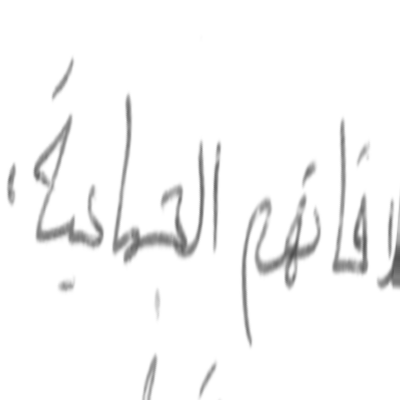 لاقاتهم الجماعية،